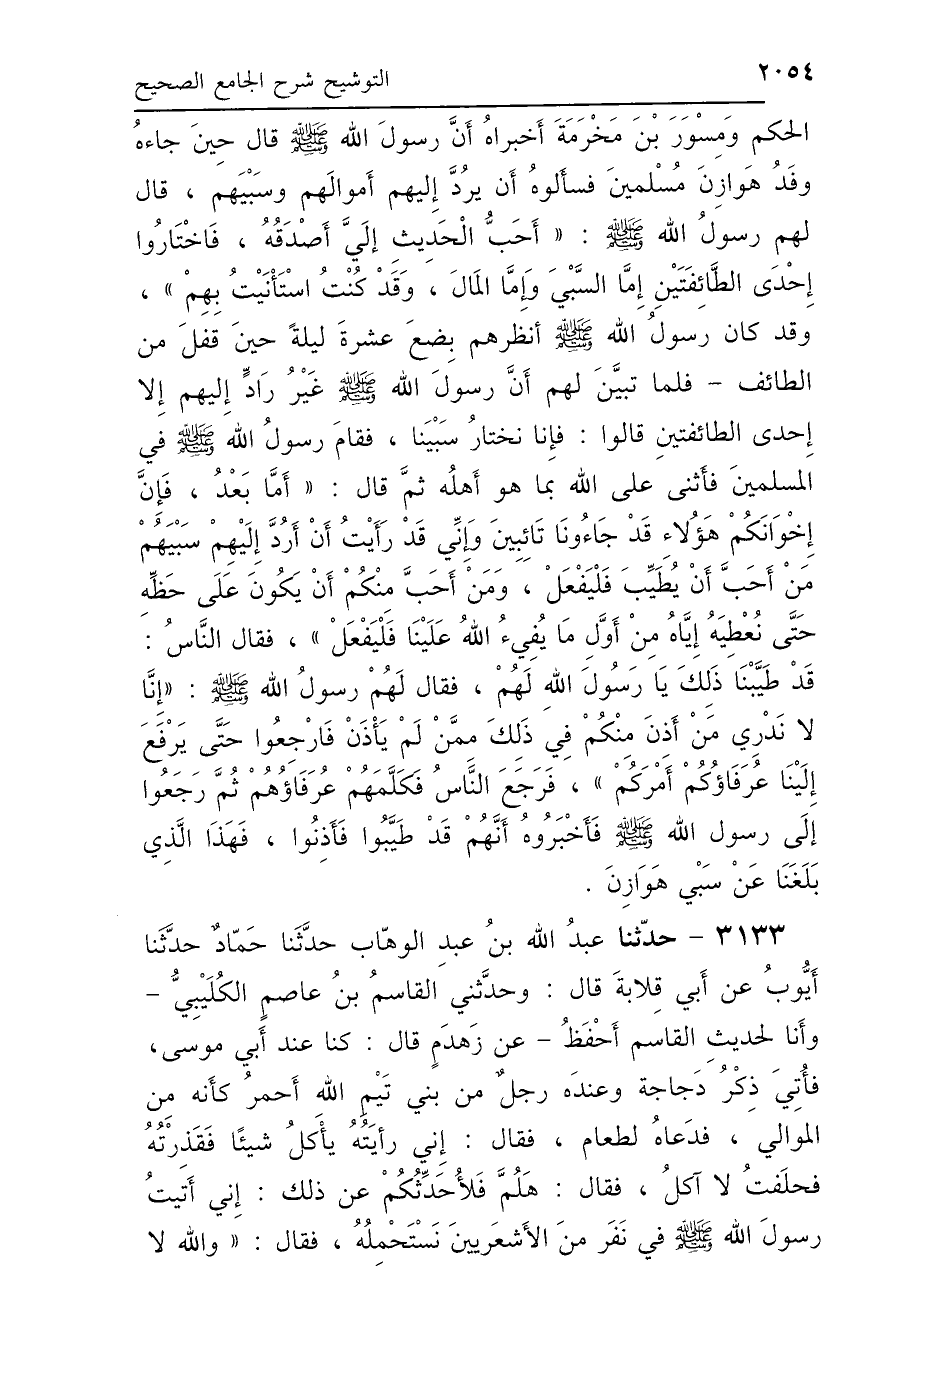 ٢٠٥٤
التوشيح شرح الجامع الصحيح
الحكم وَمِسْوَرَ بْنَ مَخْرَمَةَ أخبراهُ أنَّ رسولَ الله ﷺ قال حِينَ جاءهُ
وفَدُ هَوازِنَ مُسْلمينَ فسألوهُ أن يرُدَّ إليهم أموالَهم وسَبْيَهم ، قال
لهم رسولُ الله ﷺ : « أَحَبُّ الْحَدِيثِ إلَيَّ أَصْدَقُهُ ، فَاخْتَارُوا
إِحْدَى الطَّائِفَتَيْنِ إمَّا السَّبْيَ وَإِمَّا المَالَ ، وَقَدْ كُنْتُ اسْتَأْنَيْتُ بِهِمْ » ،
وقد كان رسولُ الله ﷺ أنظرهم بِضعَ عشرةَ ليلةً حينَ قفلَ من
الطائف – فلما تبيَّنَ لهم أنَّ رسولَ الله ﷺ غَيْرُ رَادٍّ إليهم إلا
إحدى الطائفتينِ قالوا : فإنا نختارُ سَبْيَنَا ، فقامَ رسولُ الله ﷺ في
المسلمينَ فأثنى على الله بما هو أهلُه ثمَّ قال : « أَمَّا بَعْدُ ، فَإنَّ
إِخْوَانَكُمْ هَؤُلاءِ قَدْ جَاءُونَا تَائِبِينَ وَإِنِّي قَدْ رَأَيْتُ أَنْ أَرُدَّ إِلَيْهِمْ سَبْيَهُمْ
مَنْ أَحَبَّ أَنْ يُطَيِّبَ فَلْيَفْعَلْ ، وَمَنْ أَحَبَّ مِنْكُمْ أَنْ يَكُونَ عَلَى حَظِّهِ
حَتَّى نُعْطِيَهُ إيَّاهُ مِنْ أَوَّلِ مَا يُفِيءُ اللهُ عَلَيْنَا فَلْيَفْعَلْ » ، فقال النَّاسُ :
قَدْ طَيَّبْنَا ذَلِكَ يَا رَسُولَ اللهِ لَهُمْ ، فقال لَهُمْ رسولُ الله ﷺ : «إنَّا
لا نَدْرِي مَنْ أَذِنَ مِنْكُمْ فِي ذَلِكَ مِمَّنْ لَمْ يَأْذَنْ فَارْجِعُوا حَتَّى يَرْفَعَ
إِلَيْنَا عُرَفَاؤُكُمْ أَمْرَكُمْ » ، فَرَجَعَ النَّاسُ فَكَلَّمَهُمْ عُرَفَاؤُهُمْ ثُمَّ رَجَعُوا
إلَى رسول الله ﷺ فَأَخْبَرُوهُ أَنَّهُمْ قَدْ طَيَّبُوا فَأَذِنُوا ، فَهَذَا الَّذِي
بَلَغَنَا عَنْ سَبْيِ هَوَازِنَ .
٣١٣٣ – حدّثنا عبدُ الله بنُ عبدِ الوهّاب حدَّثَنا حَمّادٌ حدثَّنا
أَيُّوبُ عن أَبي قِلابةَ قال : وحدثَّني القاسمُ بنُ عاصمٍ الكُلَيْبِيُّ –
وأنا لحديثِ القاسم أَحْفَظُ – عن زَهدَمٍ قال : كنا عند أبي موسى،
فأُتِيَ ذِكْرُ دَجاجة وعندَه رجلٌ من بني تَيْمِ الله أحمرُ كأنه من
الموالي ، فدَعاهُ لطعام ، فقال : إني رأيتُهُ يأْكلُ شيئًا فَقَذِرْتُهُ
فحلَفتُ لا آكلُ ، فقال : هَلُمَّ فَلأُحَدِّثُكُمْ عن ذلك : إني أَتيتُ
رسولَ الله ﷺ في نَفَر منَ الأشعَريينَ نَسْتَحْمِلُهُ ، فقال : « والله لا